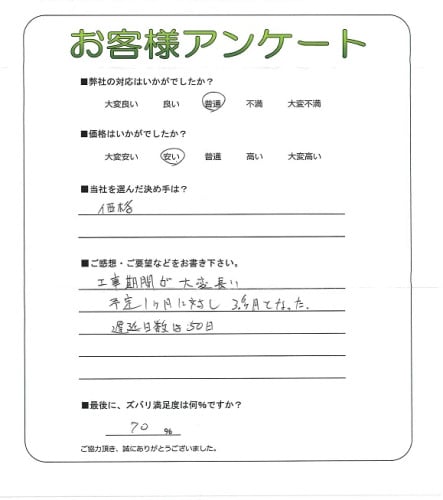 お客様アンケート
■弊社の対応はいかがでしたか？
大変良い　良い　普通　不満　大変不満
■価格はいかがでしたか？
大変安い　安い　普通　高い　大変高い
■当社を選んだ決め手は？
価格
■ご感想・ご要望などをお書き下さい。
工事期間が大変長い
予定1ヶ月に対し 3ヶ月となった.
遅延日数は50日
■最後に、ズバリ満足度は何％ですか？
70 ％
ご協力頂き、誠にありがとうございました。